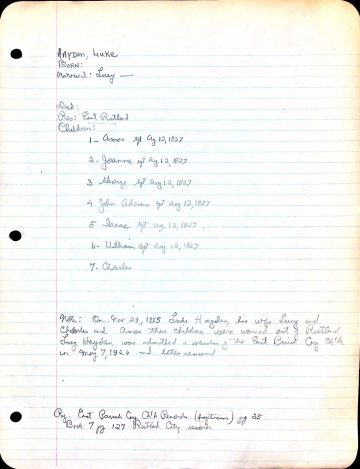 HAYDEN, Luke
BORN:
Married: Lucy —
Died:
Res: East Rutland
Children:
1- Amos bpt Aug 12, 1827
2- Joanna bpt Aug 12, 1827
3 George bpt Aug 12, 1827
4 John Adams bpt Aug 12, 1827
5 Isaac bpt Aug 12, 1827
6- William bpt Aug 12, 1827
7- Charles
Note: On Nov 23, Luke Hayden, his wife Lucy and
Charles and Amos their children were warned out of Rutland
Lucy Hayden was admitted a member of the East Parish Cong Ch'h
in May 7, 1826 and later removed
East Parish Cong Ch'h Records (baptisms) pg 35
Book 7 pg 127 Rutland City records